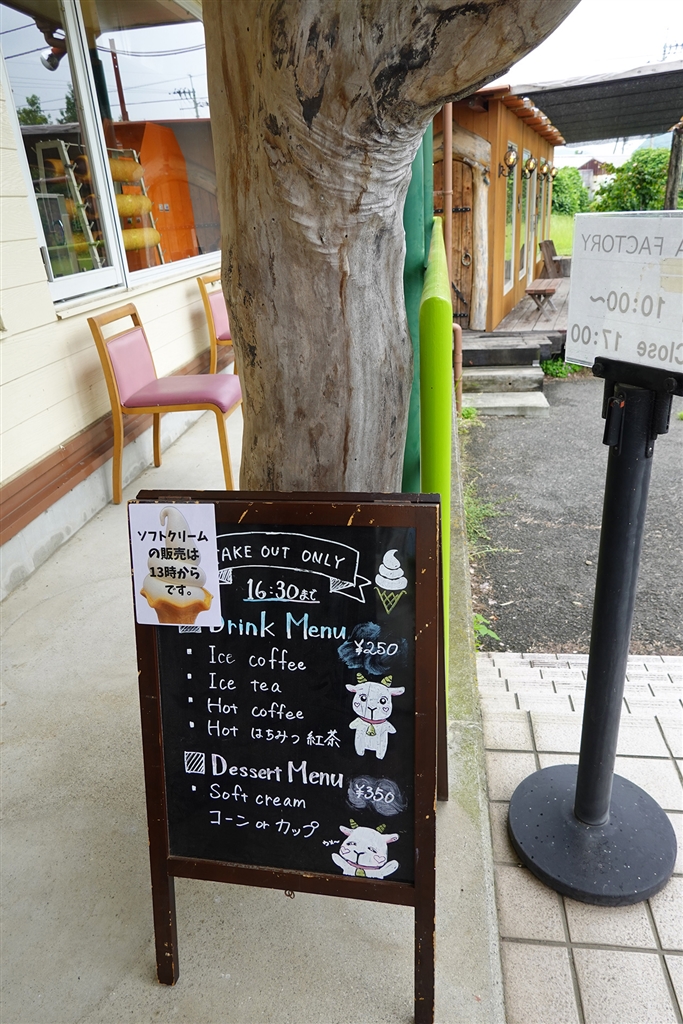 ソフトクリーム
の販売は
13時から
です。
TAKE OUT ONLY
16:30まで
Drink Menu
¥250
・Ice coffee
・Ice tea
・Hot coffee
・Hot はちみつ紅茶
Dessert Menu
¥350
・Soft cream
コーン or カップ
A FACTORY
10:00～
Close 17:00